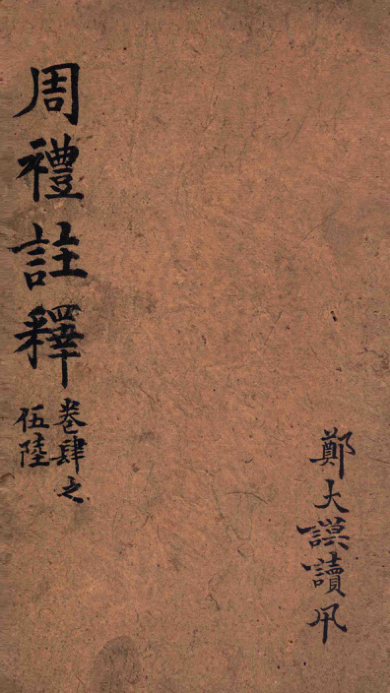 周禮註釋
卷肆之
伍陸
鄭大謨讀